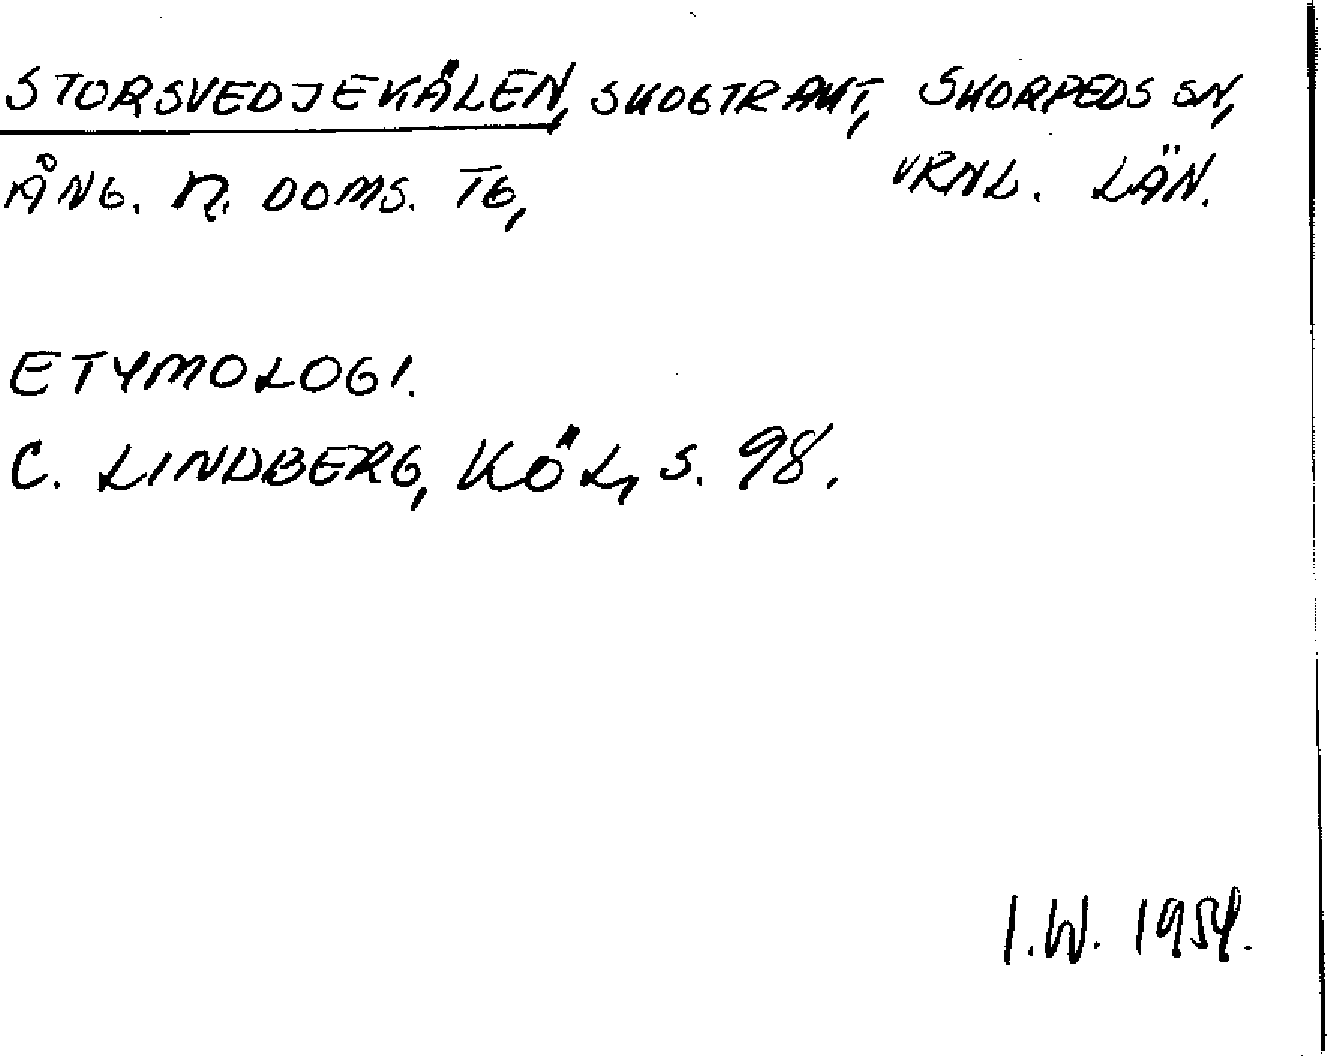 STORSVEDJEKÅLEN, SKOGTRAKT, SKORPEDS SN,
ÅNG. N. DOMS. TG, VRNL. LÄN.
ETYMOLOGI.
C. LINDBERG, KÖL, S. 98.
I.W. 1954.